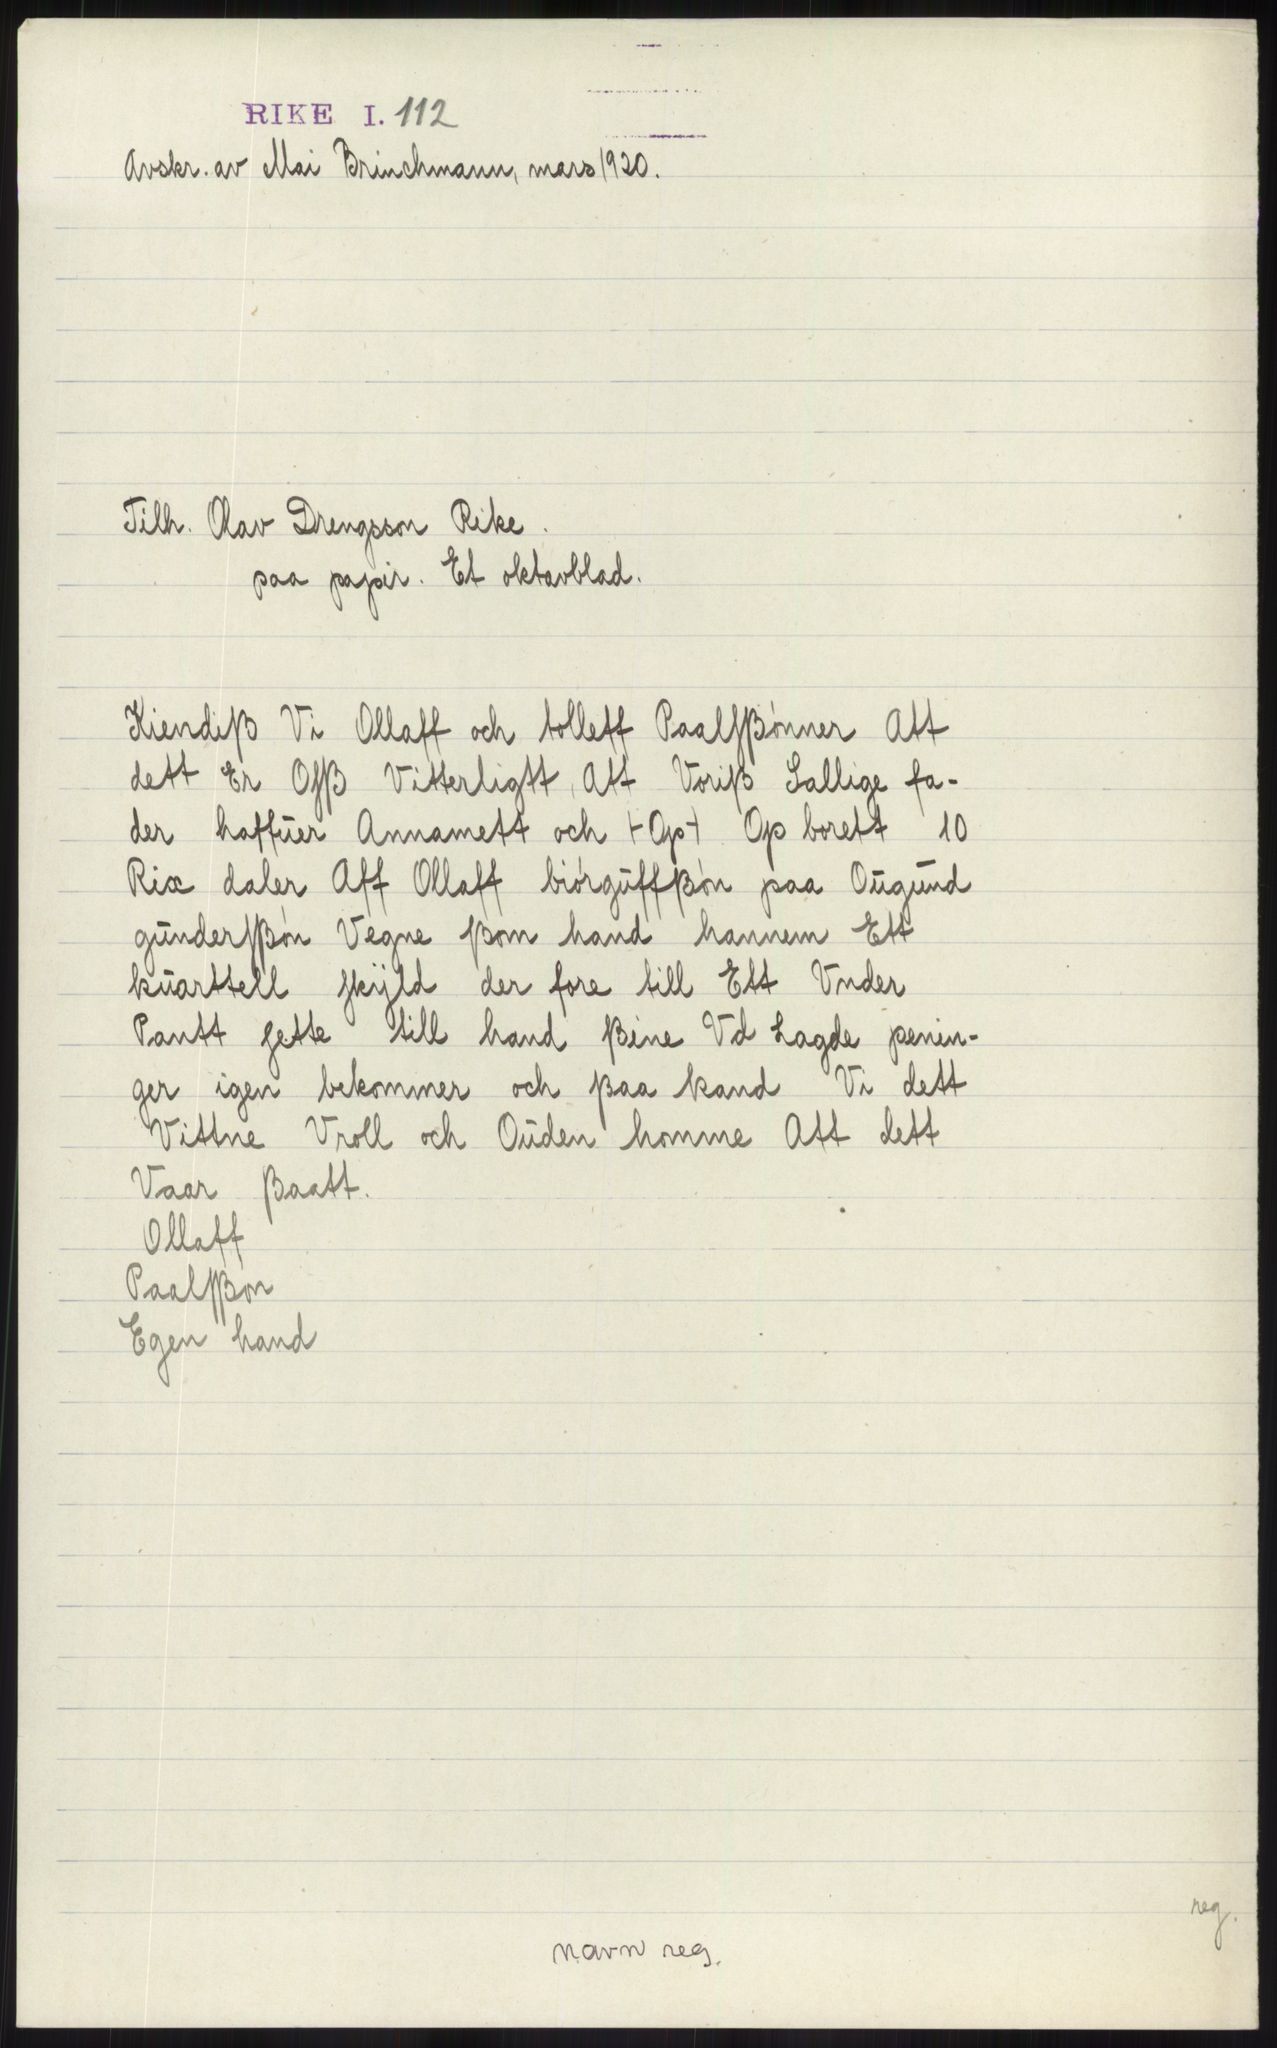 RIKE I. 112
Avskr. av Mai Brinchmann, mars 1920.
Tilh. Olav Drengsson Rike.
paa papir. Et oktavblad.
Kiendiß Vi Ollaff och tolleff Paalsßønner Att
dett Er Osß Vitterligtt, Att Voriß Sallige fa-
der haffŭer Annamett och ⊢Op⊣ Op borett 10
Rix daler Aff Ollaff biórgŭffßón paa Oŭgŭnd
gŭndersßón Vegne ßom hand hannem Ett
kŭarttell skÿld der fore till Ett Vnder
Pantt sette till hand ßine Vd Lagde penin-
ger igen bekommer och ßaa kand Vi dett
Vittne Vroll och Oŭden homme Att dett
Vaar ßaatt.
Ollaff
Paalsßón
Egen hand
reg.
navn reg.